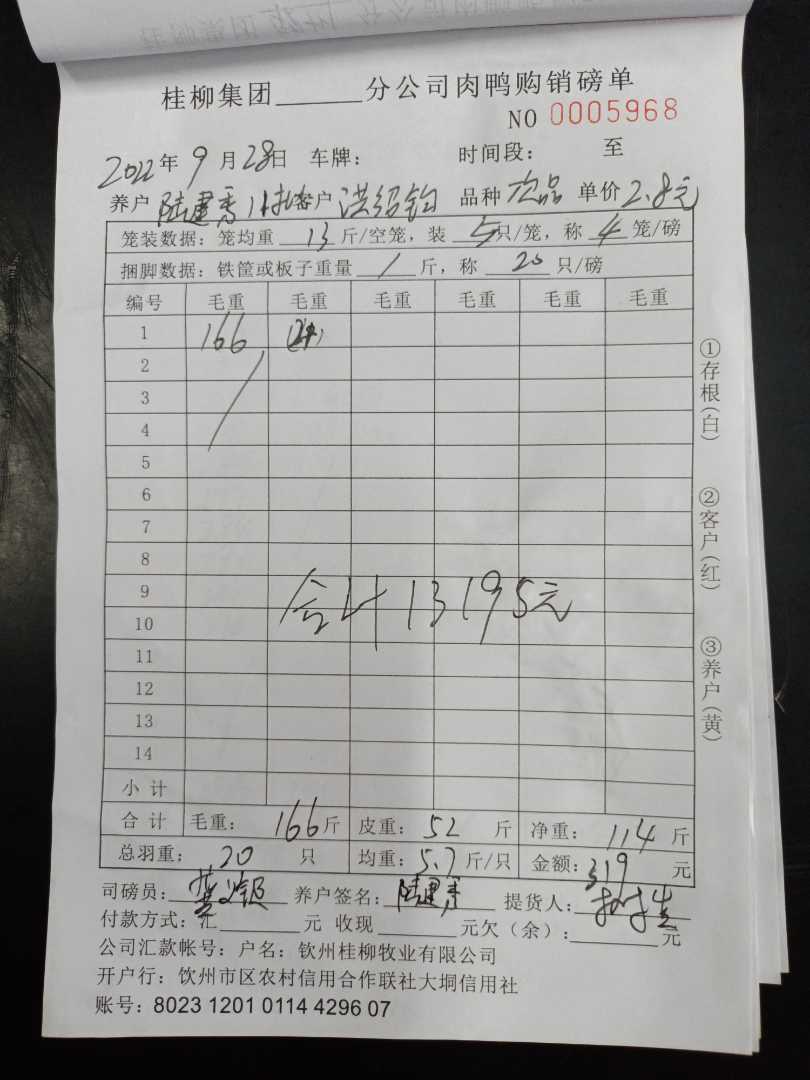 桂柳集团______分公司肉鸭购销磅单
NO 0005968
2022年9月28日 车牌： 时间段： 至
养户 陆建秀 11批 客户 洪绍钧 品种 次品 单价 2.8元
笼装数据：笼均重 13 斤/空笼，装 5 只/笼，称 4 笼/磅
捆脚数据：铁筐或板子重量 / 斤，称 20 只/磅
编号 毛重 毛重 毛重 毛重 毛重 毛重
1 166
2
3
4
5
6
7
8
9
合计13195元
10
11
12
13
14
小计
合计 毛重： 166斤 皮重： 52 斤 净重： 114 斤
总羽重： 20 只 均重：5.7斤/只 金额：319 元
司磅员： 养户签名：陆建秀 提货人：
付款方式：汇______元 收现______元欠（余）：______元
公司汇款帐号：户名：钦州桂柳牧业有限公司
开户行：钦州市区农村信用合作联社大垌信用社
账号：8023 1201 0114 4296 07
①存根(白)
②客户(红)
③养户(黄)